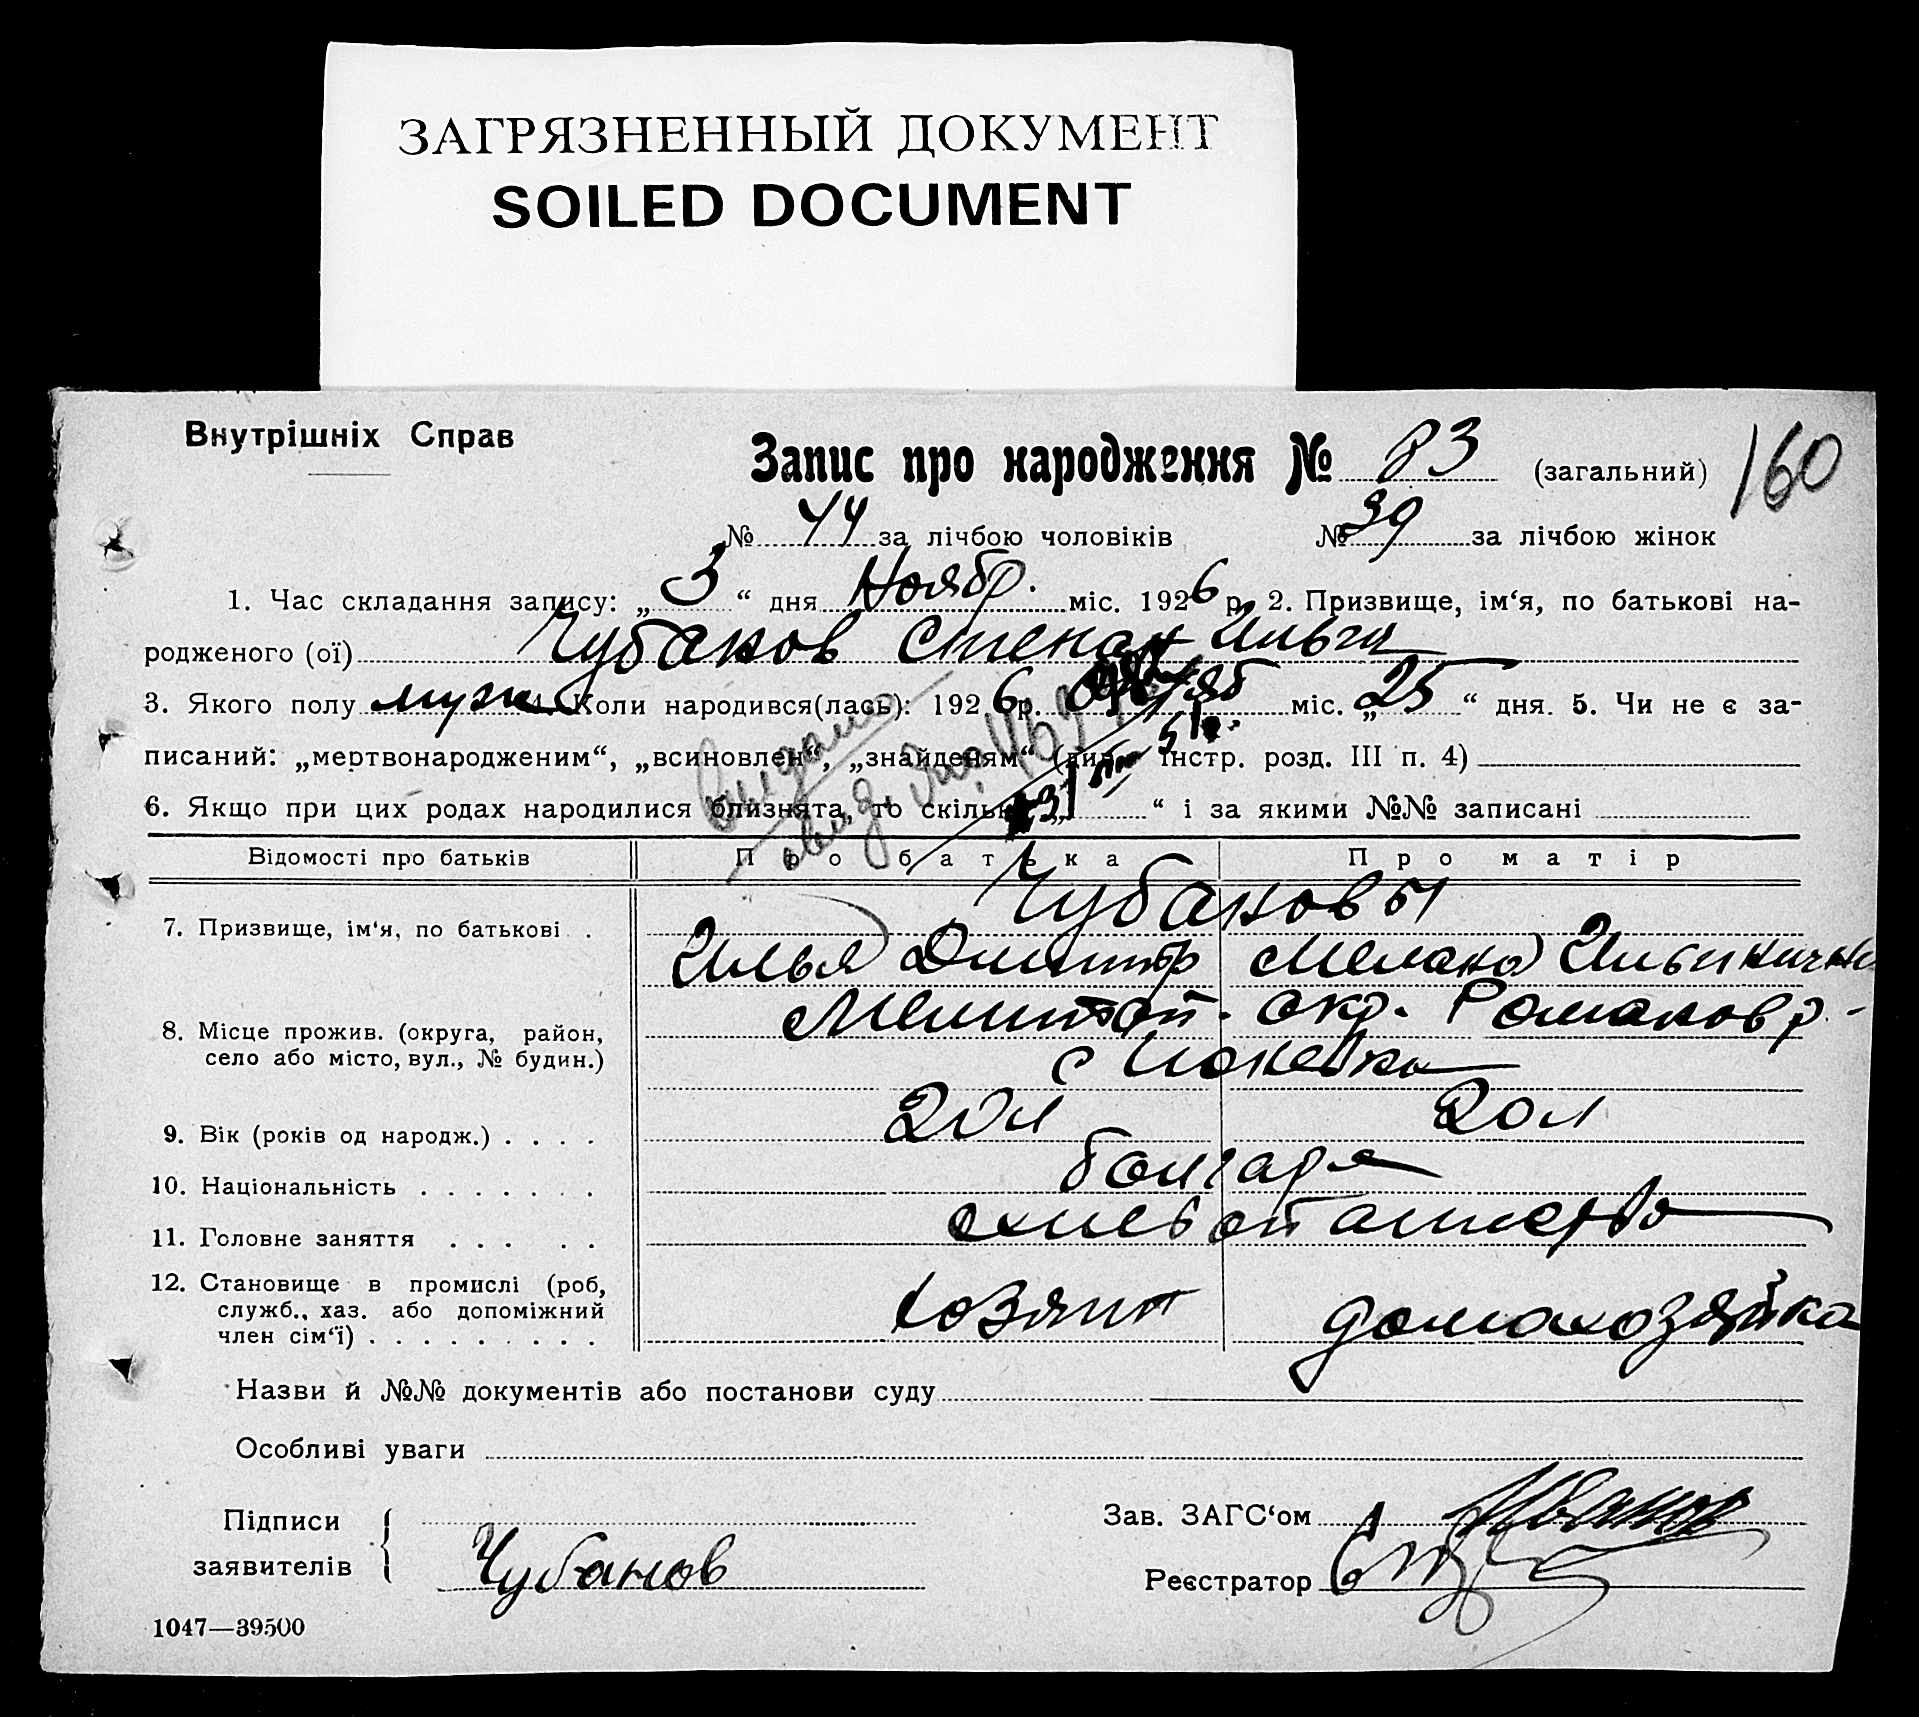 ЗАГРЯЗНЕННЫЙ ДОКУМЕНТ
SOILED DOCUMENT
Внутрішніх Справ
Запис про народження № 83 (загальний) 160
№ 44 за лічбою чоловіків № 39 за лічбою жінок
1. Час складання запису: „ 3 “ дня Ноябр. міс. 1926 р. 2. Призвище, ім‘я, по батькові на-
родженого (ої) Чубанов Степан Ильич
3. Якого полу муж 4. Коли народився(лась): 1926 р. міс. „ 25 “ дня. 5. Чи не є за-
писаний: „мертвонародженим“, „всиновлен“, „знайденям“ (див. Інстр. розд. III п. 4)
6. Якщо при цих родах народилися близнята, то скільки „ “ і за якими №№ записані
Відомості про батьків Про батька Про матір
Чубановы
7. Призвище, ім‘я, по батькові .
Илья Дмитр Мелания
Мелитоп. окр. Романов р.
8. Місце прожив. (округа, район,
село або місто, вул., № будин.)
с
9. Вік (років од народж.) . . . . 20 л 20 л
10. Національність . . . . . . . болгаре
11. Головне заняття . . . . . хлебопашество
12. Становище в промислі (роб,
служб., хаз. або допоміжний
член сім‘ї) . . . . . . . . . хозяин домохозяйка
Назви й №№ документів або постанови суду
Особливі уваги
Підписи
заявителів Чубанов
Зав. ЗАГС‘ом
Реєстратор
1047—39500